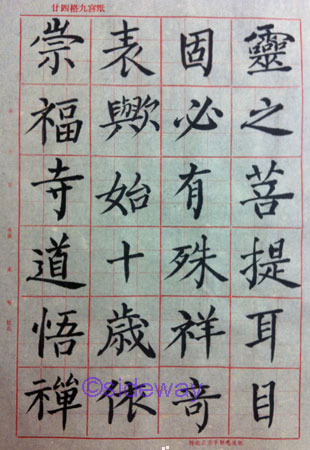 廿四格九宮紙
靈之菩提耳目
固必有殊祥奇
表歟始十歳依
崇福寺道悟禪
©sideway